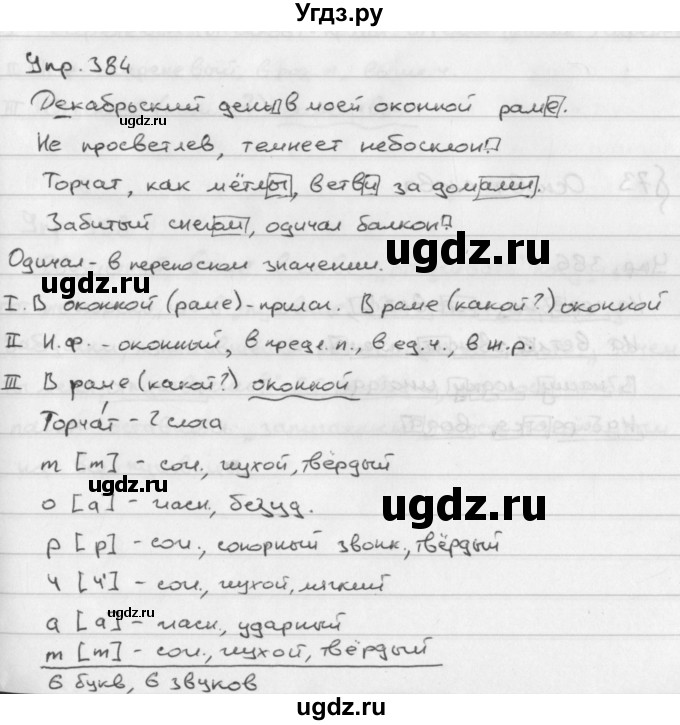 Угдз.ру
Упр. 384
Декабрьский день в моей оконной раме.
Не просветлев, темнеет небосклон.
Торчат, как мётлы, ветви за домами.
Забитый снегом, одичал балкон.
Одичал - в переносном значении.
I. В оконной (раме) - прилаг. В раме (какой?) оконной
II Н.ф. - оконный, в предл.п., в ед.ч., в ж.р.
III В раме (какой?) оконной
Торча́т - 2 слога
т [т] - согл., глухой, твёрдый
о [а] - гласн., безуд.
р [р] - согл., сонорный звонк., твёрдый
ч [ч'] - согл., глухой, мягкий
а [а] - гласн., ударный
т [т] - согл., глухой, твёрдый
6 букв, 6 звуков
ugdz.ru
ugdz.ru
ugdz.ru
ugdz.ru
ugdz.ru
ugdz.ru
ugdz.ru
ugdz.ru
ugdz.ru